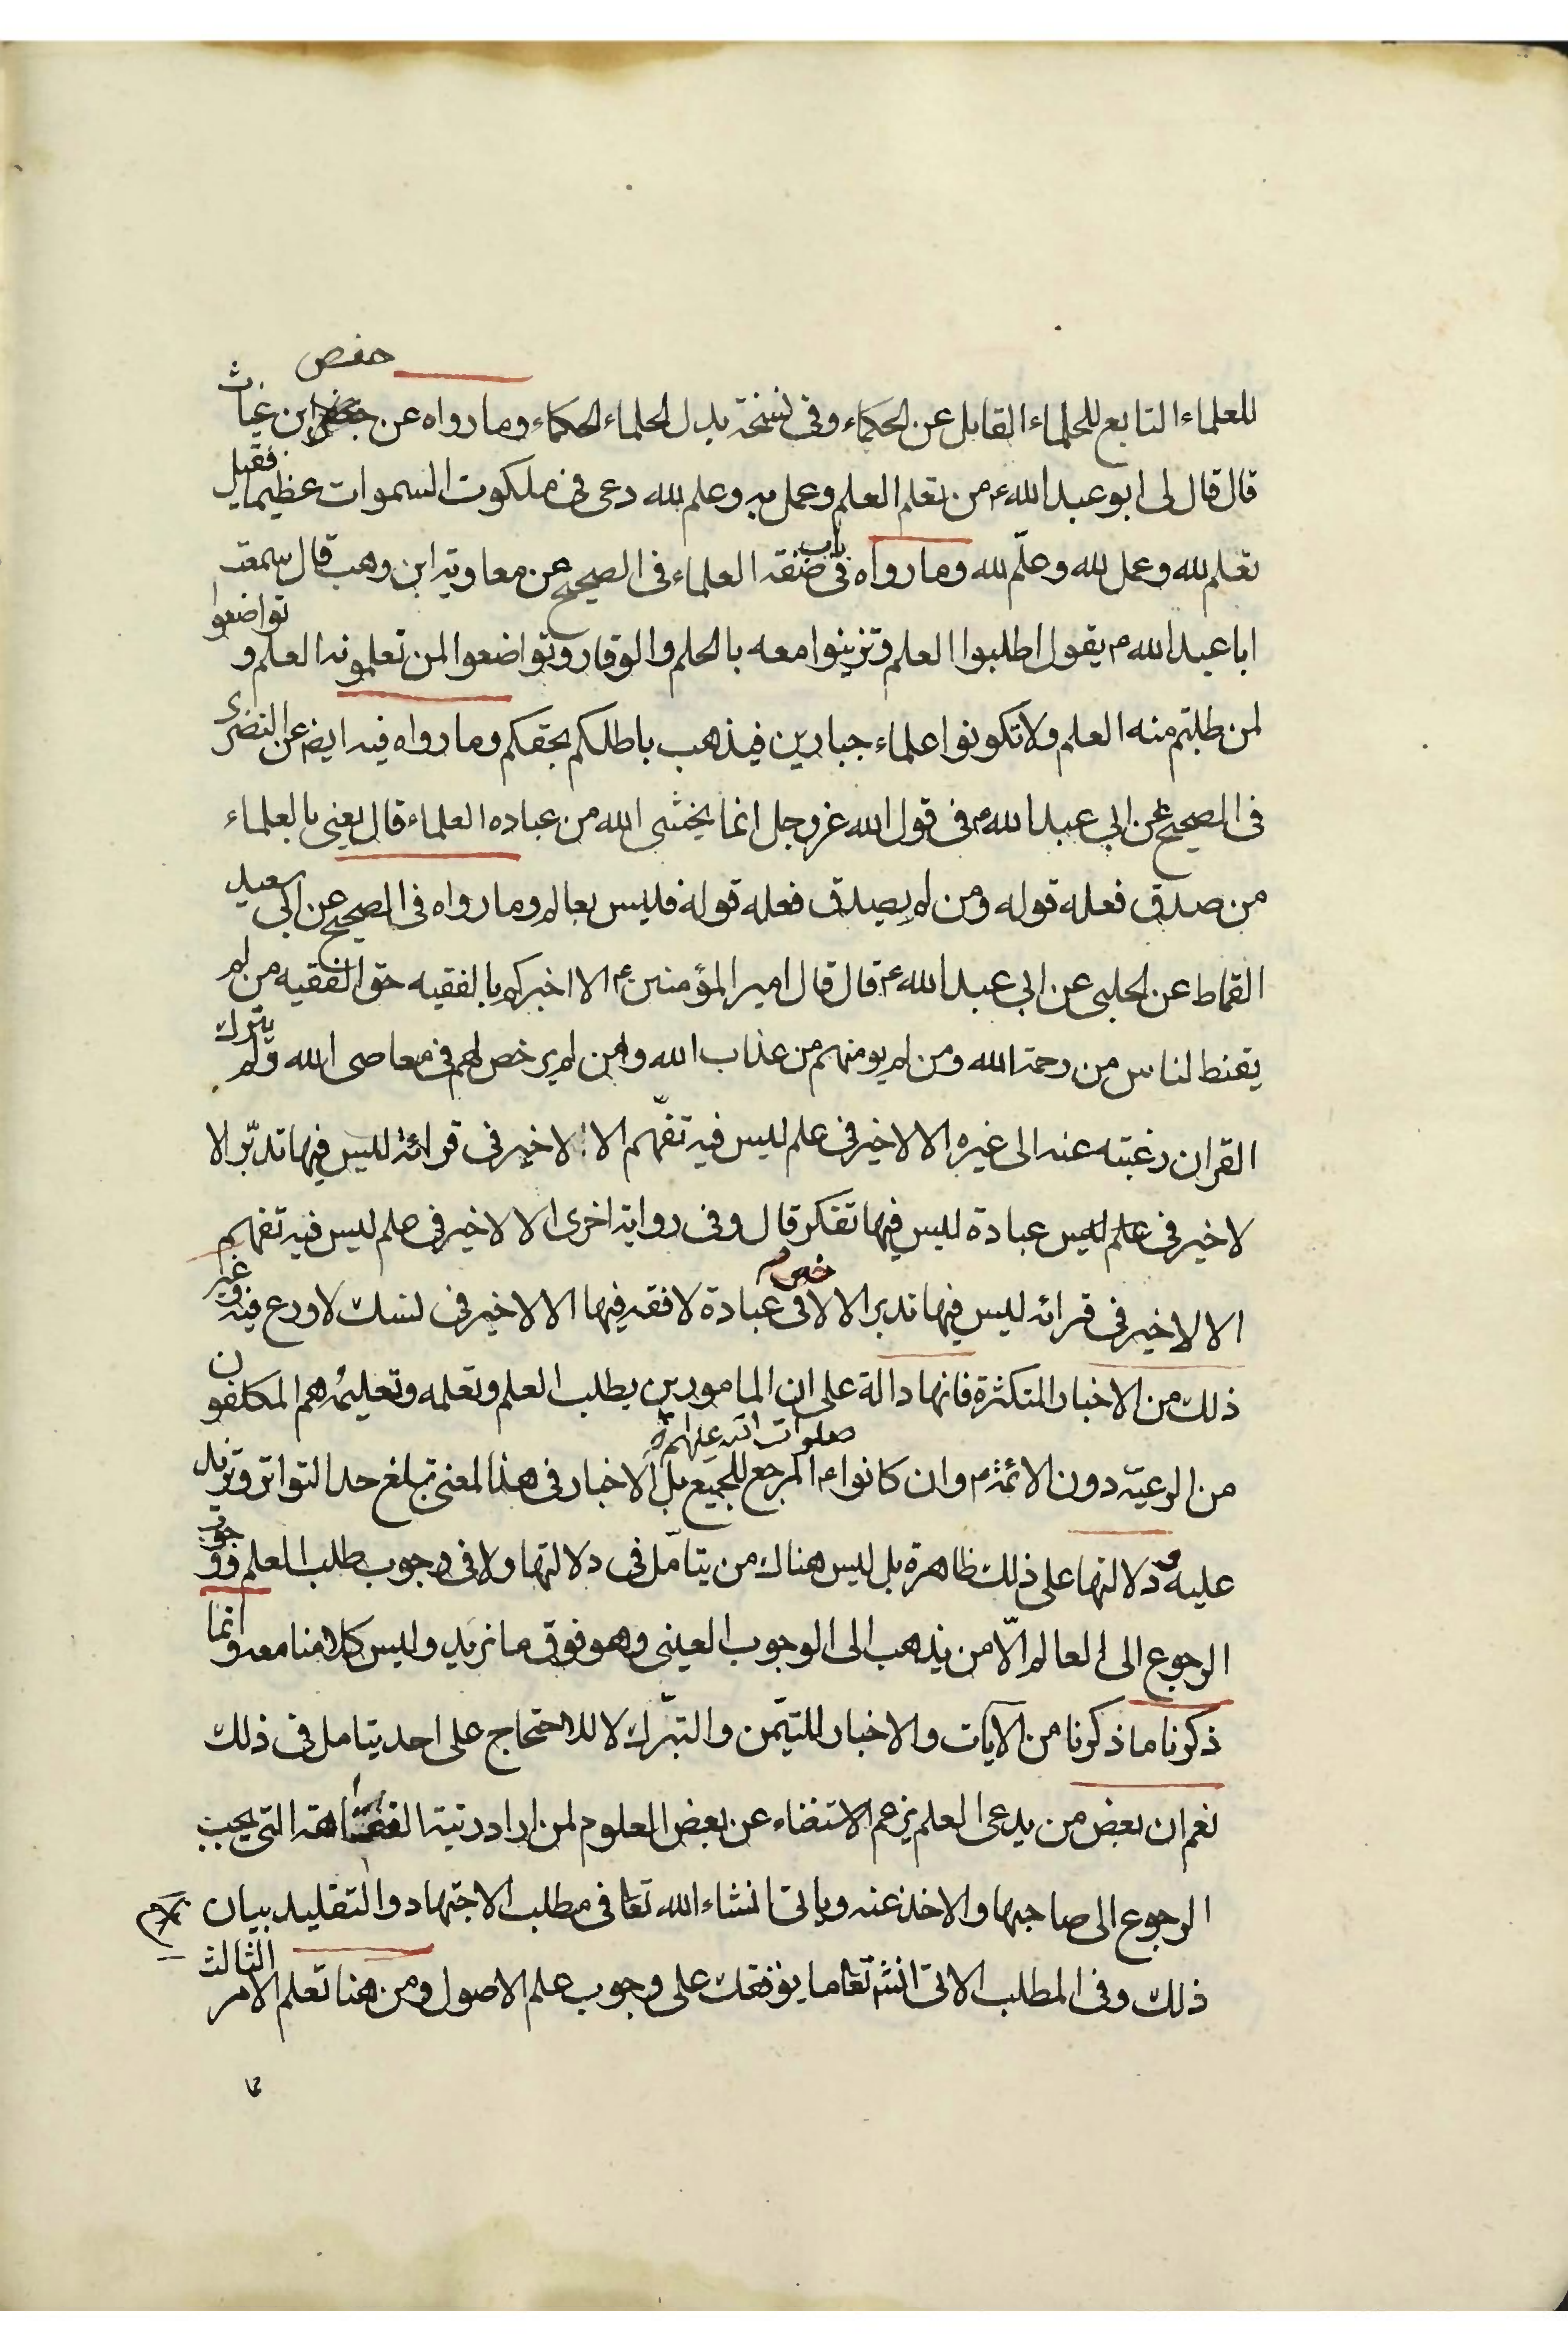 حفص
للعلماء التابع للحلماء القابل عن الحكماء وفى نسخة بدل الحلماء الحكماء وما رواه عن ابن غياث
قال قال لى ابو عبد الله ع من تعلم العلم وعمل به وعلم لله دعى فى ملكوت السموات عظيما فقيل
تعلم لله وعمل لله وعلّم لله وما رواه فى باب صفة العلماء فى الصحيح عن معاوية ابن وهب قال سمعت
ابا عبد الله ع يقول اطلبوا العلم وتزينوا معه بالحلم والوقار وتواضعوا لمن تعلمونه العلم و تواضعوا
لمن طلبتم منه العلم ولا تكونوا علماء جبارين فيذهب باطلكم بحقكم وما رواه فيه ايض عن النضرى
فى الصحيح عن ابى عبد الله ع فى قول الله عز وجل انما يخشى الله من عباده العلماء قال يعنى بالعلماء
من صدق فعله قوله ومن لم يصدق فعله قوله فليس بعالم وما رواه فى الصحيح عن ابى سعيد
القماط عن الحلبى عن ابى عبد الله ع قال قال امير المؤمنين ع الا اخبركم بالفقيه حق الفقيه من لم
يقنط الناس من رحمة الله ومن لم يومنهم من عذاب الله ومن لم يرخص لهم فى معاصى الله ولم يترك
القران رغبته عنه الى غيره الا لا خير فى علم ليس فيه تفهّم الا لا خير فى قرائة ليس فيها تدبّر الا
لا خير فى علم ليس عبادة ليس فيها تفكر قال وفى رواية اخرى الا لا خير فى علم ليس فيه تفهم
الا لا خير فى قرائه ليس فيها تدبر الا لا خير فى عبادة لا فقه فيها الا لا خير فى نسك لا ورع فيه وغير
ذلك من الاخبار المتكثرة فانها دالة على ان المامورين بطلب العلم وتعلمه وتعليمه هم المكلفون
صلوات الله عليهم
من الرعيّة دون الائمة ع وان كانوا ع المرجع للجميع بل الاخبار فى هذا المعنى تبلغ حد التواتر وتزيد
عليه و دلالتها على ذلك ظاهرة بل ليس هناك من يتامّل فى دلالتها ولا فى وجوب طلب العلم ووجوب
الرجوع الى العالم الّا من يذهب الى الوجوب العينى وهو فوق ما نريد وليس كلامنا معه وانما
ذكرنا ما ذكرنا من الآيات والاخبار للتيمّن والتبّرك لا للاحتجاج على احد يتامل فى ذلك
نعم ان بعض من يدعى العلم يزعم الاستغناء عن بعض العلوم لمن اراد رتبة الفقاهة التى يجب
الرجوع الى صاحبها والاخذ عنه وياتى انشاء الله تعا فى مطلب الاجتهاد والتقليد بيان
ذلك وفى المطلب الاتى انشٓ تعا ما يوقفك على وجوب علم الاصول ومن هنا تعلم الامر الثالث